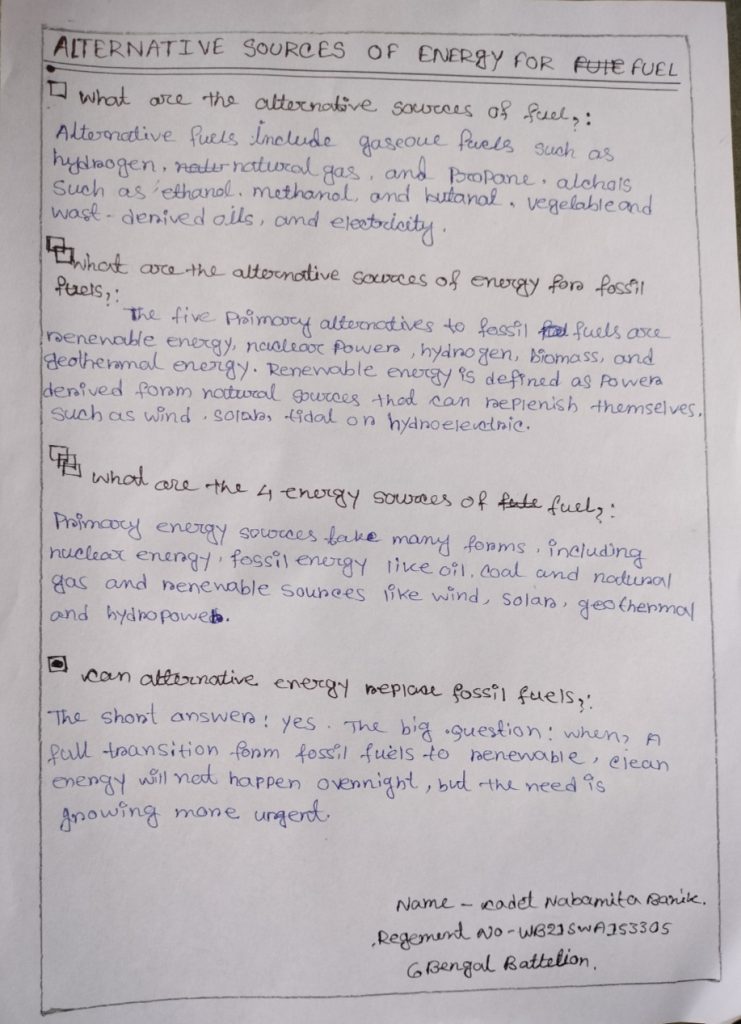 ALTERNATIVE SOURCES OF ENERGY FOR FUTE FUEL
What are the alternative sources of fuel?:
Alternative fuels include gaseoue fuels such as
hydrogen, natu natural gas, and Propane, alchols
Such as ethanol, methanol, and butanal, vegelable and
wast-derived oils, and electricity.
What are the alternative sources of energy for fossil
fuels?:
The five Primary alternatives to fossil fuel fuels are
renenable energy, nuclear Power, hydrogen, biomass, and
geothermal energy. Renewable energy is defined as Power
derived form natural sources that can replenish themselves,
such as wind, solar, tidal or hydroelectric.
What are the 4 energy sources of fute fuel?:
Primary energy sources take many forms, including
nuclear energy, fossil energy like oil, coal and natural
gas and renenable sources like wind, solar, geothermal
and hydropower.
can alternative energy replase fossil fuels?:
The short answer: yes. The big question: when? A
full transition form fossil fuels to renenable, clean
energy will not happen overnight, but the need is
growing more urgent.
Name - cadet Nabamita Banik.
Regement No - WB21SWA153305
6 Bengal Battelion.